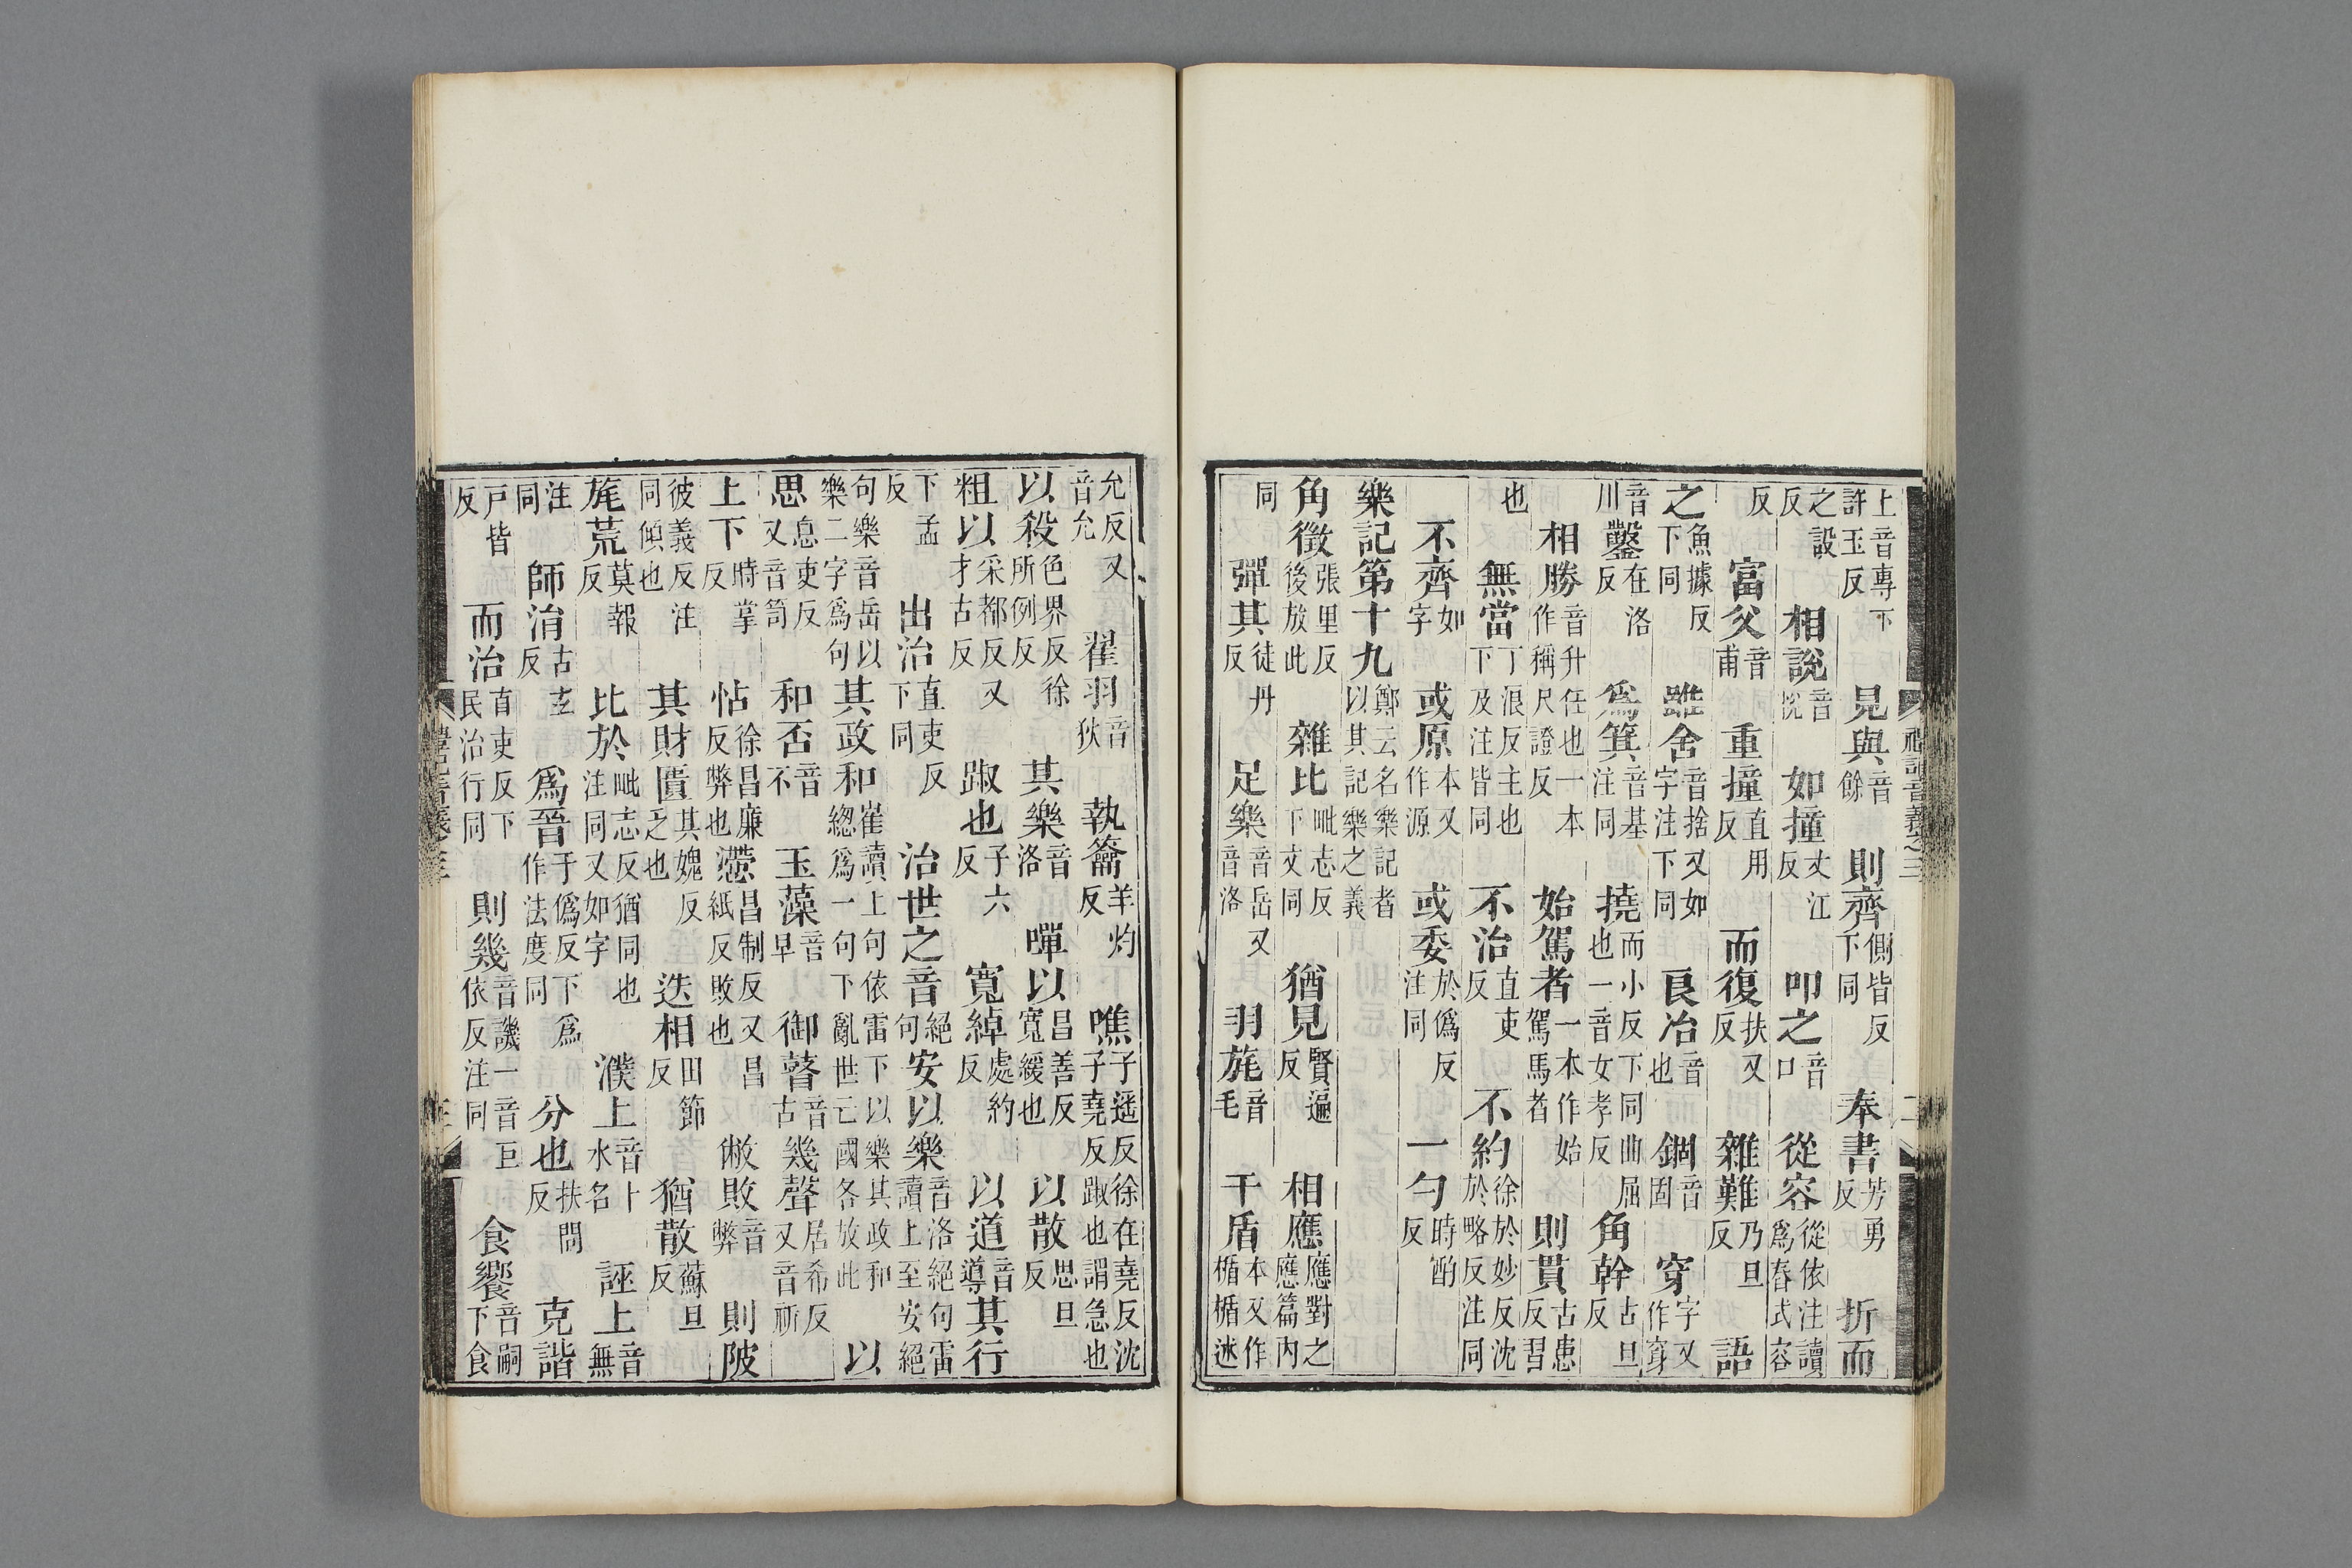 上音專下許玉反 見與音餘 則齊側皆反下同 奉書芳勇反 折而
之設反 相說音悅 如撞丈江反 叩之音口 從容從依注讀爲舂式容
反 富父音甫 重撞直用反 而復扶又反 雜難乃旦反 語
之魚據反下同 雖舍音捨又如字注下同 良冶音也 錮音固 穿字又作穽
音川鑿在洛反 爲箕音基注同 撓而小反下同曲屈也一音女孝反 角幹古旦反
相勝音升任也一本作稱尺證反 始駕者一本作始駕馬者 則貫古患反習
也 無當丁浪反主也下及注皆同 不治直吏反 不約徐於妙反沈於略反注同
不齊如字 或原本又作源 或委於僞反注同 一勺時酌反
樂記第十九鄭云名樂記者以其記樂之義
角徵張里反後放此 雜比毗志反下文同 猶見賢遍反 相應應對之應篇內
同 彈其徒丹反 足樂音岳又音洛 羽旄音毛 干盾本又作楯楯述
允反又音允 翟羽音狄 執籥羊灼反 噍子遥反徐在堯反沈子堯反踧也謂急也
以殺色界反徐所例反 其樂音洛 嘽以昌善反寬緩也 以散思旦反
粗以采都反又才古反 踧也子六反 寬綽處約反 以道音導其行
下孟反 出治直吏反下同 治世之音絕句安以樂音洛絕句雷讀上至安絕
句樂音岳以樂二字爲句其政和崔讀上句依雷下以樂其政和總爲一句下亂世亡國各放此 以
思息吏反又音笥 和否音不 玉藻音早 御瞽音古幾聲居希反又音祈
上下時掌反 怗徐昌廉反弊也懘昌制反又昌紙反敗也 敝敗音弊 則陂
彼義反注同傾也 其財匱其媿反乏也 迭相田節反 猶散蘇旦反
旄荒莫報反 比於毗志反猶同也注同又如字 濮上音卜水名 誣上音無
注同 師涓古玄反 爲晉于僞反下爲作法度同 分也扶問反 克諧
戶皆反 而治直吏反下民治行同 則幾音譏一音巨依反注同 食饗音嗣下食
禮記音義之三
二